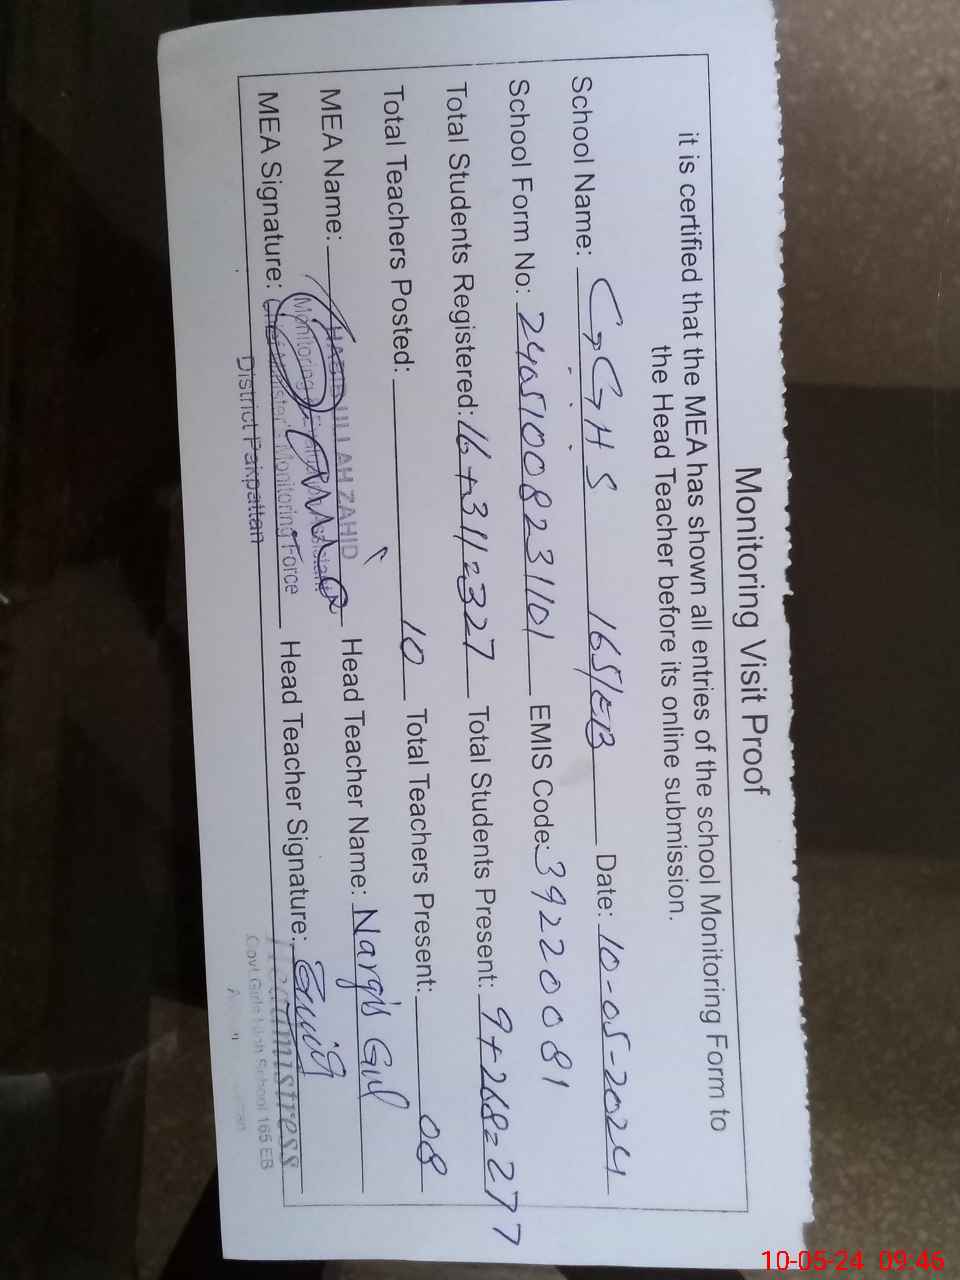 Monitoring Visit Proof
it is certified that the MEA has shown all entries of the school Monitoring Form to
the Head Teacher before its online submission.
School Name: GGHS 165/EB Date: 10-05-2024
School Form No: 24051008231101 EMIS Code: 39220081
Total Students Registered: 16+311=327 Total Students Present: 9+268=277
Total Teachers Posted: 10 Total Teachers Present: 08
MEA Name: HASIB ULLAH ZAHID Head Teacher Name: Nargis Gul
Monitoring
MEA Signature: Chief Minister's Monitoring Force Head Teacher Signature:
District Pakpattan
Headmistress
Govt Girls High School 165 EB
10-05-24 09:46